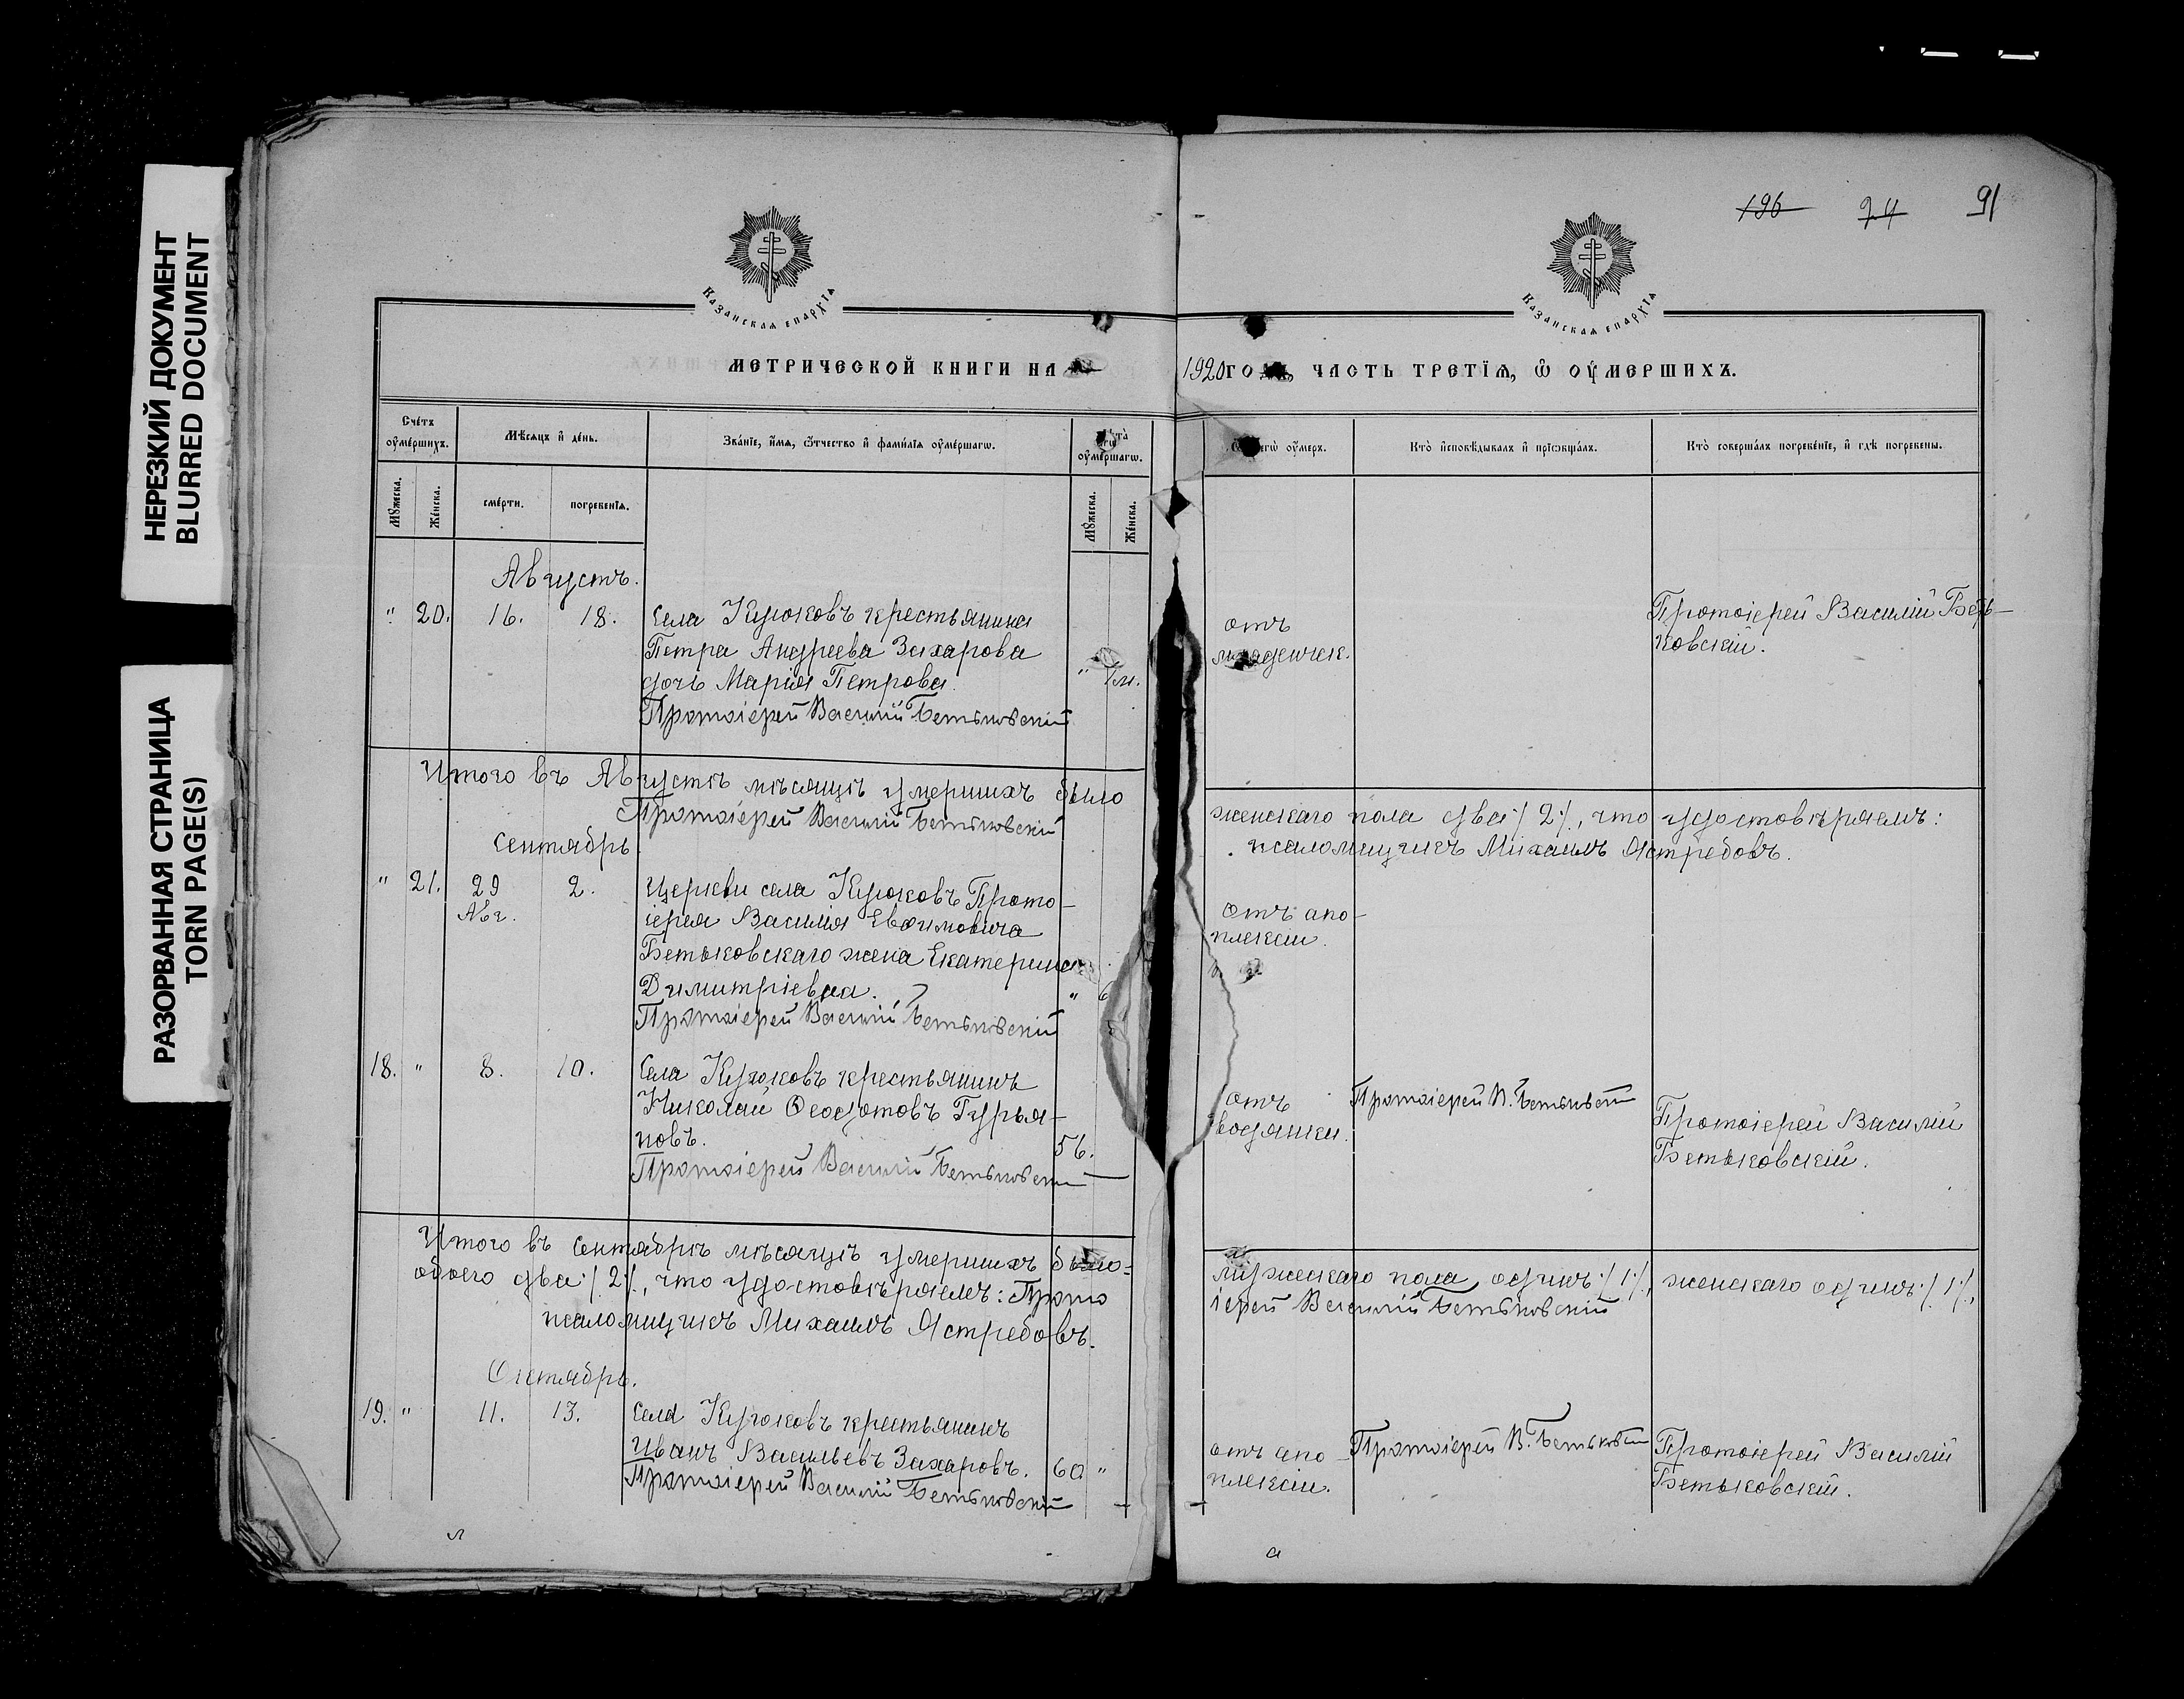 НЕРЕЗКИЙ ДОКУМЕНТ
BLURRED DOCUMENT
РАЗОРВАННАЯ СТРАНИЦА
TORN PAGE(S)
196 94 91
Казанская епархїѧ
Казанская епархїѧ
МЕТРИЧЕСКОЙ КНИГИ НА 1920 ГО ЧАСТЬ ТРЕТЇѦ, Ѡ ОУМЕРШИХЪ.
Сче́тъ оу҆ме́ршихъ.
Мѣ́сѧцъ и҆ де́нь.
Зва́нїе, и҆́мѧ, ѻ҆́тчество и҆ фами́лїѧ оу҆ме́ршагѡ.
оу҆ме́ршагѡ.
оу҆́меръ.
Кто̀ и҆сповѣ́дывалъ и҆ прїѡбща́лъ.
Кто̀ соверша́лъ погребе́нїе, и҆ гдѣ̀ погребены.
Мꙋ́жеска.
Же́нска.
сме́рти.
погребе́нїѧ.
Мꙋ́жеска.
Же́нска.
Августъ.
" 20. 16. 18. Села Куюковъ крестьянина
Петра Андреева Захарова
дочь Мария Петрова. "
Протоіерей Василій Бетьковскій
отъ
младенческ.
Протоіерей Василій Беть-
ковскій.
Итого въ Августѣ мѣсяцѣ умершихъ было
женскаго пола два ⁒ 2 ⁒, что удостовѣряемъ:
Протоіерей Василій Бетьковскій
псаломщикъ Михаилъ Ястребовъ.
Сентябрь.
" 21. 29 Авг. 2. Церкви села Куюковъ Прото-
іерея Василія Евѳимовича
Бетьковскаго жена Екатерина
Димитріевна. "
Протоіерей Василій Бетьковскій
отъ апо-
плексіи.
18. " 8. 10. Села Куюковъ крестьянинъ
Николай Ѳеодотовъ Гурья-
новъ. 56.
Протоіерей Василій Бетьковскій
отъ
водянки.
Протоіерей В. Бетьковскій
Протоіерей Василій
Бетьковскій.
Итого въ Сентябрѣ мѣсяцѣ умершихъ было:
мужескаго пола одинъ ⁒ 1 ⁒, женскаго одинъ ⁒ 1 ⁒,
обоего два ⁒ 2 ⁒, что удостовѣряемъ: Прото
іерей Василій Бетьковскій
псаломщикъ Михаилъ Ястребовъ.
Октябрь.
19. " 11. 13. Села Куюковъ крестьянинъ
Иванъ Васильевъ Захаровъ. 60 "
Протоіерей Василій Бетьковскій
отъ апо-
плексіи.
Протоіерей В. Бетьковскій
Протоіерей Василій
Бетьковскій.